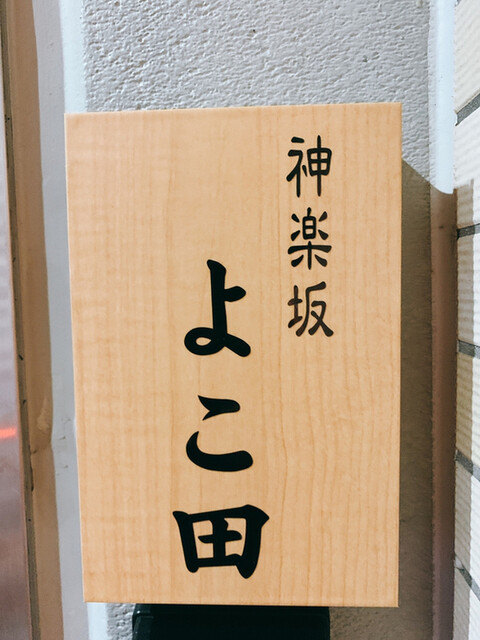 神楽坂
よこ田